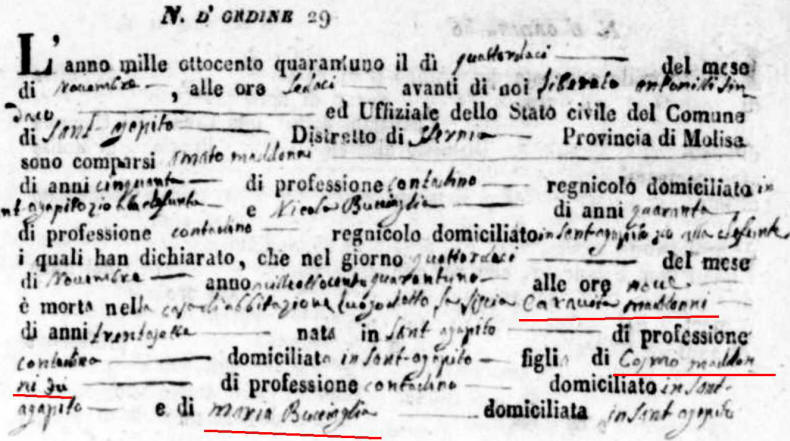 N. D'ORDINE 29
L'anno mille ottocento quarantuno il di quattordaci del mese
di Novembre, alle ore Sedaci avanti di noi Liberato Antonilli Sin
daco ed Uffiziale dello Stato civile del Comune
di Sant-agapito Distretto di Isernia Provincia di Molise
sono comparsi Amato maddonni
di anni cinquanta di professione contadino regnicolo domiciliato in
nt-agapito zio alla defunta e Nicola Bucciaglia di anni quaranta
di professione contadino regnicolo domiciliato in Sant-agapito zio alla defunta
i quali han dichiarato, che nel giorno quattordaci del mese
di Novembre anno mille ottocento quarantuno alle ore nove
è morta nella casa di abbitazione luogo detto la maddonni
di anni trentasette nata in Sant agapito di professione
contadina domiciliata in Sant-agapito figlia di Cosmo maddon
ni di professione contadino domiciliato in Sant-
agapito e di Maria Bucciaglia domiciliata in Sant agapito